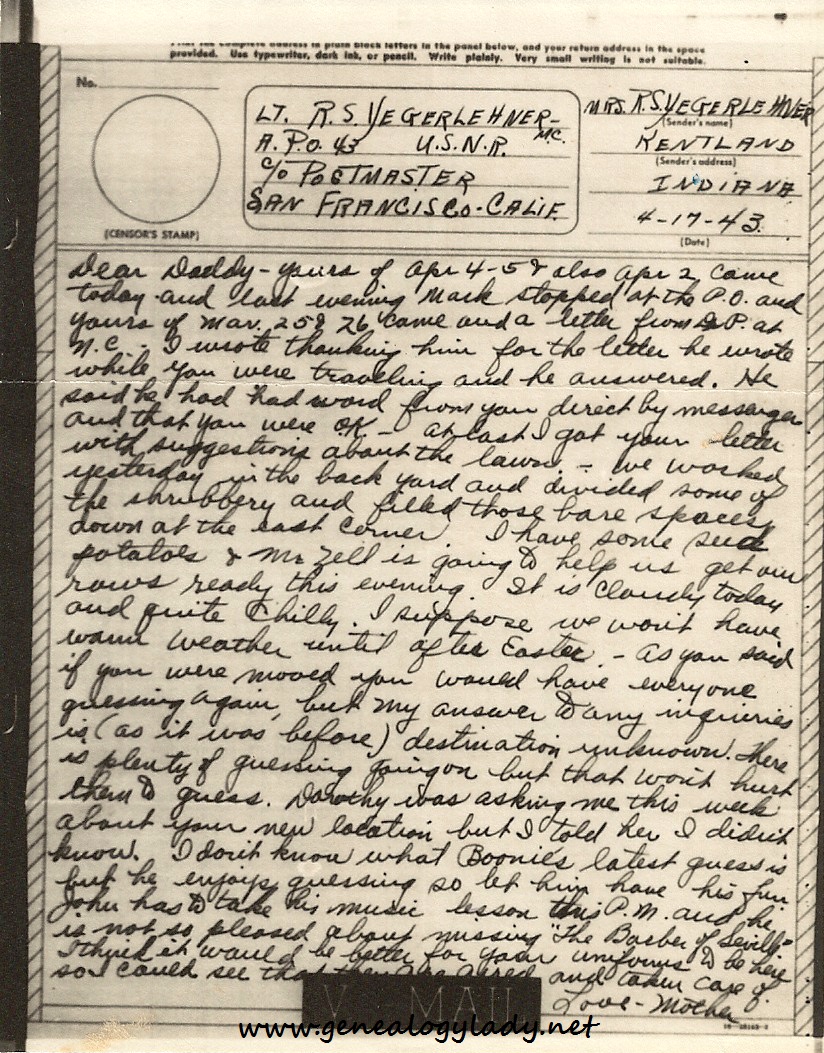 Print the complete address in plain block letters in the panel below, and your return address in the space
provided. Use typewriter, dark ink, or pencil. Write plainly. Very small writing is not suitable.
No.
(CENSOR'S STAMP)
LT. R.S. YEGERLEHNER-
M.C.
A.P.O. 43 U.S.N.R.
c/o POSTMASTER
SAN FRANCISCO-CALIF.
MRS. R.S. YEGERLEHNER
(Sender's name)
KENTLAND
(Sender's address)
INDIANA
4-17-43
(Date)
Dear Daddy - yours of Apr 4-5 & also Apr 2 came
today and last evening Mark stopped at the P.O. and
yours of Mar. 25 & 26 came and a letter from P. at
N.C. - I wrote thanking him for the letter he wrote
while you were traveling and he answered. He
said he had had word from you direct by messenger
and that you were OK - at last I got your letter
with suggestions about the lawn. - We worked
yesterday in the back yard and divided some of
the shrubbery and filled those bare spaces
down at the east corner. I have some seed
potatoes & Mr Zell is going to help us get our
rows ready this evening. It is cloudy today
and quite chilly. I suppose we won't have
warm weather until after Easter. - As you said
if you were moved you would have everyone
guessing again, but my answer to any inquiries
is (as it was before) destination unknown. There
is plenty of guessing going on but that won't hurt
them to guess. Dorothy was asking me this week
about your new location but I told her I didn't
know. I don't know what Boonie's latest guess is
but he enjoys guessing so let him have his fun
John has to take his music lesson this P.M. and he
is not so pleased about missing "The Barber of Seville"
I think it would be better for your uniforms to be here
so I could see that they are aired and taken care of
Love - Mother
V - MAIL
www.genealogylady.net